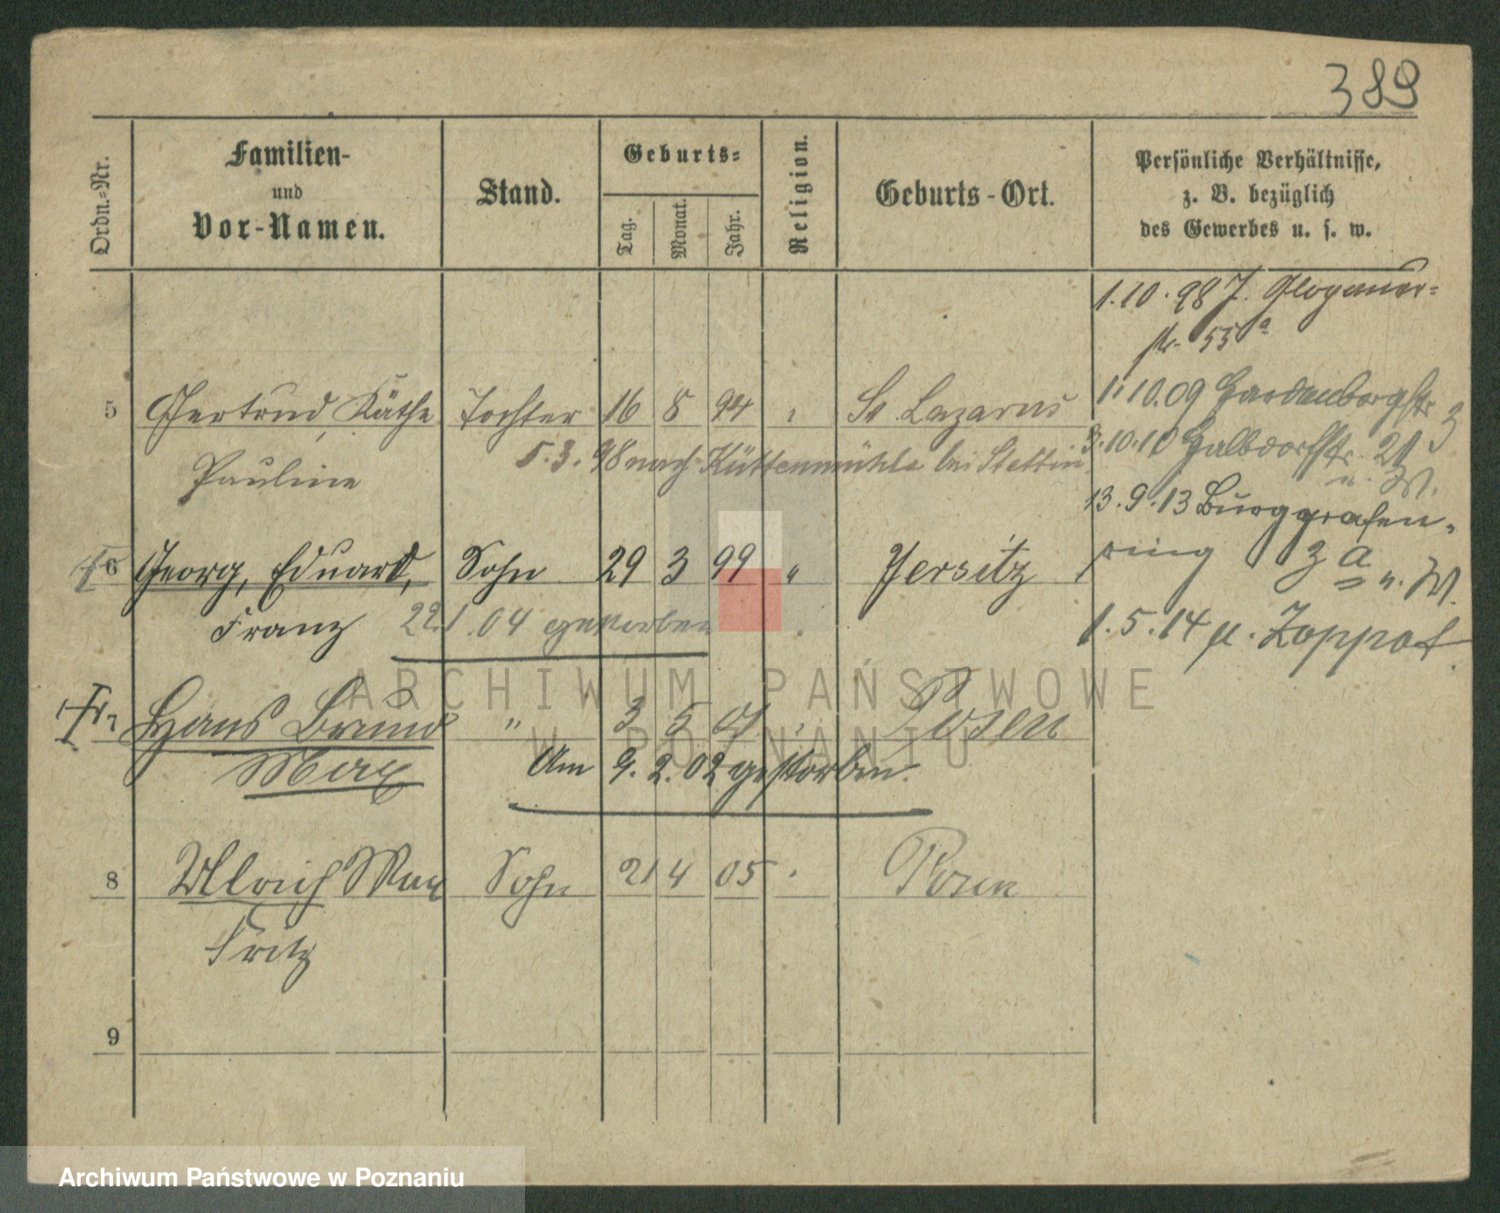 389
Ordn.-Nr.
Familien-
und
Vor-Namen.
Stand.
Geburts-
Tag.
Monat.
Jahr.
Religion.
Geburts-Ort.
Persönliche Verhältnisse,
z. B. bezüglich
des Gewerbes u. s. w.
1.10.98 J. Glogauer-
str. 55a
5 Gertrud, Käthe Tochter 16 8 94 " St Lazarus
Pauline
5.3.98 nach Küttenmühle bei Stettin
1.10.09 Hardenbergstr 3
10.10 21
u. W.
13.9.13 Burggrafen-
ring 3 a u. W.
1.5.14 Zoppot
6 Georg, Eduard, Sohn 29 3 99 " Jersitz
Franz 22.1.04 gestorben
7 Hans Bruno " 3 5 01 " Posen
Max Am 9.2.02 gestorben.
8 Ulrich Max Sohn 21 4 05 Posen
Fritz
9
ARCHIWUM PAŃSTWOWE
W POZNANIU
Archiwum Państwowe w Poznaniu